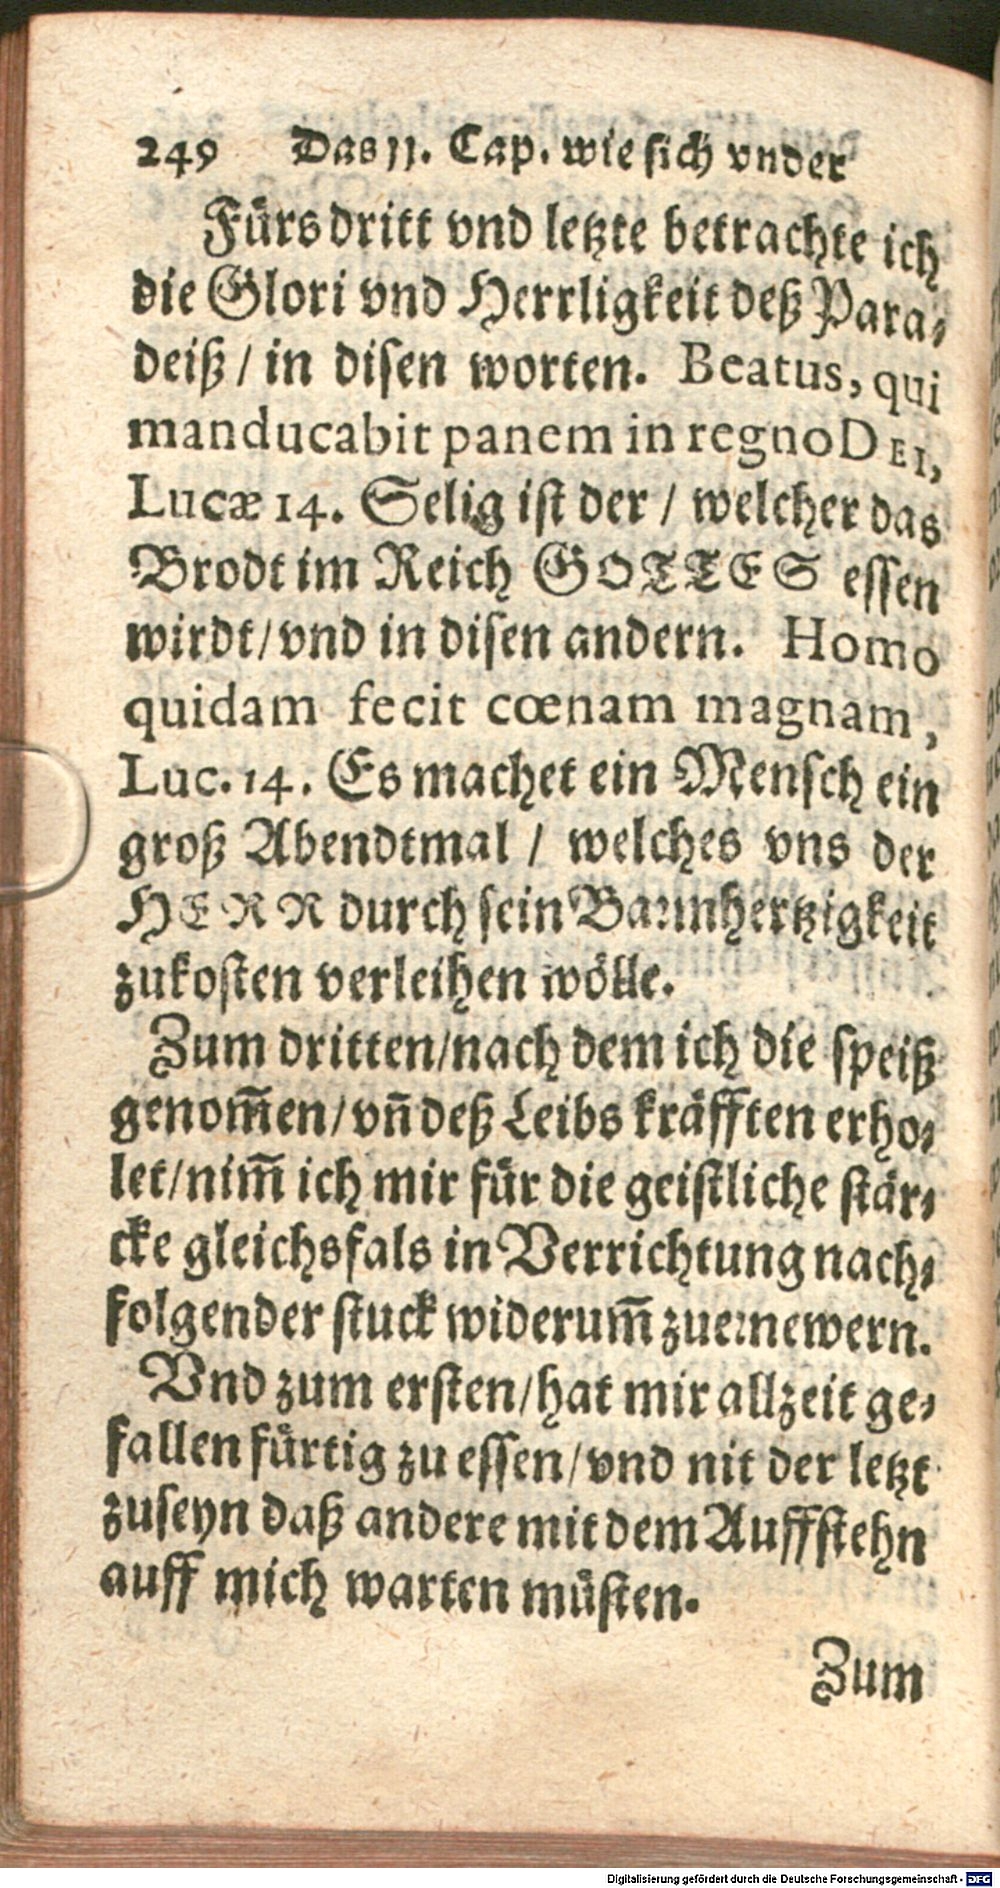 249 Das 11. Cap. wie sich vnder
Fürs dritt vnd letzte betrachte ich
die Glori vnd Herrligkeit deß Para⸗
deiß / in disen worten. Beatus, qui
manducabit panem in regno DEI,
Lucæ 14. Selig ist der / welcher das
Brodt im Reich GOTTES essen
wirdt / vnd in disen andern. Homo
quidam fecit cœnam magnam,
Luc. 14. Es machet ein Mensch ein
groß Abendtmal / welches vns der
HERR durch sein Barmhertzigkeit
zukosten verleihen wölle.
Zum dritten / nach dem ich die speiß
genom̄en / vn̄ deß Leibs kräfften erho⸗
let / nim̄ ich mir für die geistliche stär⸗
cke gleichsfals in Verrichtung nach⸗
folgender stuck widerum̄ zuernewern.
Vnd zum ersten / hat mir allzeit ge⸗
fallen fürtig zu essen / vnd nit der letzt
zuseyn daß andere mit dem Auffstehn
auff mich warten müsten.
Zum
Digitalisierung gefördert durch die Deutsche Forschungsgemeinschaft - DFG